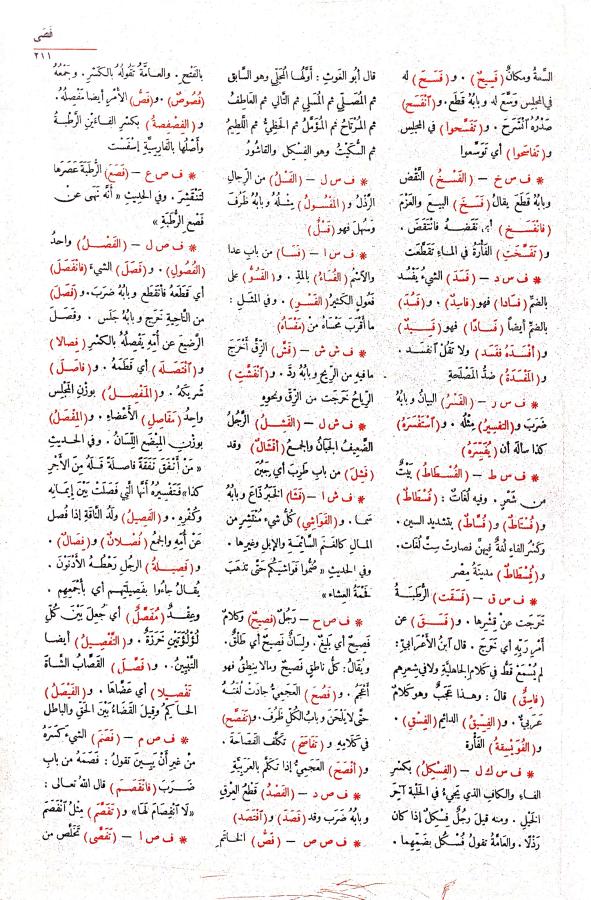 فَصَى
٢١١
السَّعةُ ومكانٌ (فَسِيحٌ) . و (فَسَحَ) له
في المجلِسِ وَسَّعَ له وبابُه قَطَع. و(آنْفَسَحَ)
صَدْرُه آنْشَرَحَ . و (تَفَسَّحوا) في المجلِس
و (تفاسَحوا) أي تَوسَّعوا
* ف س خ – (الفَسْخُ) النَّقْض
وبابُه قَطَع يقال (فَسَخَ) البيعَ والعَزْمَ
(فانْفَسَخَ) أي نَقَضَه فانْتَقَضَ .
و (تَفَسَّخَتِ) الفَأْرةُ في الماءِ تَقَطَّعَت
* ف س د – (فَسَدَ) الشيءُ يَفْسُد
بالضمّ (فَسَادا) فهو (فاسِدٌ) . و (فَسُدَ)
بالضم أيضاً (فَسَادًا) فهو (فَسِيدٌ)
و (أَفْسَدَه ففَسَد) ولا تَقُل آنفسد .
و (المَفْسَدةُ) ضدُّ المَصْلَحة
* ف س ر – (الفَسْرُ) البيانُ وبابُهُ
ضَرَب و (التفسيرُ) مِثْلُه . و (آسْتَفْسَرَه)
كذا سأله أن (يُفَسِّرَه)
* ف س ط – (الفُسْطاطُ) بَيْتٌ
من شَعْرٍ . وفيه لُغَاتٌ : (فُسْطَاطٌ)
و (فُسْتَاطٌ) و (فُسَّاطٌ) بتشديد السين .
وكَسْرُ الفاء لُغةٌ فيهنّ فصارت سِتَّ لُغات .
و (فُسْطَاطُ) مدينةُ مصْر
* ف س ق – (فَسَقَت) الرُّطَبَةُ
خَرَجَت عن قِشْرِها . و (فَسَقَ) عن
أَمْرِ رَبِّه أي خَرَج . قال آبنُ الأَعْرابيّ :
لم يُسْمَعْ قَطُّ في كَلامِ الجاهليّة ولا في شِعرِهم
(فاسِقٌ) قالَ : وهذا عَجَبٌ وهو كلامٌ
عَرَبيٌّ . و (الفِسِّيقُ) الدائم (الفِسْقِ) .
و (الفُوَيْسِقةُ) الفأرة
* ف س ك ل – (الفِسْكِلُ) بكَسْرِ
الفاء والكافِ الذي يَجِيءُ في الحَلْبة آخِرَ
الخَيْلِ . ومنه قيلَ رجُلٌ فِسْكِلٌ إذا كان
رَذْلًا . والعامَّةُ تقول فُسْكُل بضمِّهما .
قال أبو الغوثِ : أوَّلُها المُجَلِّي وهو السابق
ثم المُصَلِّي ثم المُسَلِّي ثم التالي ثم العاطِفُ
ثم المُرْتاحُ ثم المُؤَمَّلُ ثم الحَظِيُّ ثم اللَّطِيمُ
ثم السُّكَيْتُ وهو الفِسْكِل والقاشُورُ
* ف س ل – (الفَسْلُ) من الرِّجالِ
الرَّذْلُ و (المَفْسُولُ) مِثْلُه وبابُه ظَرُفَ
وسَهُلَ فهو (فَسْلٌ)
* ف س ا – (فَسَا) من بابِ عدا
والاسْمُ (الفُسَاءُ) بالمدّ . و (الفَسُوُّ) على
فَعُولٍ الكثيرُ (الفَسْوِ) . وفي المثلِ :
ما أَقْرَبَ مَحْسَاهُ من (مَفْسَاهُ)
* ف ش ش – (فَشَّ) الزِّقَّ أَخْرَجَ
مافيه من الرِّيح وبابُه رَدَّ . و (آنْفَشَّتِ)
الرِّياحُ خَرَجَت من الزِّقِّ ونحوِه
* ف ش ل – (الفَشِلُ) الرَّجُلُ
الضَّعيفُ الجَبَانُ والجمعُ (أَفْشَالٌ) وقد
(فَشِلَ) من بابِ طَرِبَ أي جَبُنَ
* ف ش ا – (فَشَا) الخَبَرُ ذَاعَ وبابُهُ
سَمَا . و (الفَوَاشِي) كلُّ شيءٍ مُنْتَشِرٍ من
المـالِ كالغَنَمِ السَّائِمَةِ والإبلِ وغيرِها .
وفي الحديث «ضُمُّوا فَواشِيَكُم حَتَّى تَذهَبَ
فَحْمَةُ العشاءِ»
* ف ص ح – رَجُلٌ (فَصيحٌ) وكلامٌ
فَصيحٌ أي بليغٌ . ولِسانٌ فَصيحٌ أي طَلْقٌ .
ويُقالُ : كلُّ ناطِقٍ فَصيحٌ ومالا ينطِقُ فهو
أَعْجَمُ . و (فَصُحَ) العَجَمِيُّ جادَتْ لُغَتُهُ
حَتَّى لا يَلْحَنَ وبابُ الكُلِّ ظَرُفَ. و(تَفَصَّحَ)
في كلامِه و (تَفاصَحَ) تكلَّفَ الفَصاحةَ .
و (أَفْصَحَ) العجَمِيُّ إذا تكلَّم بالعربيَّةِ
* ف ص د – (الفَصْدُ) قَطْعُ العِرْقِ
وبابُه ضَرَبَ وقد (فَصَدَ) و (آفْتَصَدَ)
* ف ص ص – (فَصُّ) الخَاتَمِ
بالفَتْحِ . والعامَّةُ تقولُه بالكَسْرِ . وجَمْعُه
(فُصُوصٌ) . و (فَصُّ) الأمْرِ أيضا مَفْصِلُه .
و (الفِصْفِصةُ) بكسرِ الفاءَيْنِ الرَّطْبةُ
وأصْلُها بالفارسيَّةِ إسْفَسْت
* ف ص ع – (فَصَعَ) الرُّطَبةَ عَصَرَها
لتَنْقَشِرَ . وفي الحديثِ «أَنَّه نَهَى عن
فَصْعِ الرُّطَبةِ»
* ف ص ل – (الفَصْلُ) واحدُ
(الفُصُولِ) . و (فَصَلَ) الشيءَ (فانْفَصَلَ)
أي قَطَعَهُ فانقَطَع وبابُهُ ضَرَب. و (فَصَلَ)
من النَّاحيةِ خَرَجَ وبابُه جَلَس . وفَصَلَ
الرَّضيعَ عن أُمِّهِ يَفْصِلُه بالكسْرِ (فِصَالا)
و (آفْتَصَلَه) أي فَطَمَهُ . و (فاصَلَ)
شريكَهُ . و (المَفْصِلُ) بوزْنِ المَجْلِس
واحدُ (مَفاصِلِ) الأعْضاءِ . و (المِفْصَلُ)
بوزنِ المِبْضَعِ اللِّسانُ . وفي الحديثِ
«مَن أَنْفَقَ نَفَقةً فاصِلةً فَلَهُ مِنَ الأَجْرِ
كذا» فتَفْسيرُه أنَّها الَّتي فَصَلَتْ بَيْنَ إيمانِهِ
وكُفْرِه . و (الفَصِيلُ) ولَدُ النَّاقةِ إذا فُصِل
عَنْ أُمِّه والجمْعُ (فُصْلانٌ) و (فِصالٌ) .
و (فَصِيلةُ) الرجُلِ رَهْطُه الأَدْنَوْنَ .
يُقالُ جاءُوا بفَصيلَتِهم أي بأجْمَعِهم .
وعِقْدٌ (مُفَصَّلٌ) أي جُعِلَ بَيْنَ كُلِّ
لُؤْلُؤَتَيْنِ خَرَزَةٌ . و (التَّفْصِيلُ) أيضا
التَّبْيينُ . و (فَصَّلَ) القَصَّابُ الشَّاةَ
(تَفْصيلا) أي عَضَّاها . و (الفَيْصَلُ)
الحاكمُ وقيلَ القَضَاءُ بَيْنَ الحقِّ والباطلِ
* ف ص م – (فَصَمَ) الشيءَ كَسَرَهُ
مِنْ غيرِ أنْ يَبينَ تقولُ : فَصَمَهُ من بابِ
ضَرَبَ (فانْفَصَمَ) قال اللهُ تعالى :
«لَا آنْفِصَامَ لَهَا» و (تَفَصَّمَ) مِثْلُ آنْفَصَمَ
* ف ص ا – (تَفَصَّى) تَخَلَّصَ من